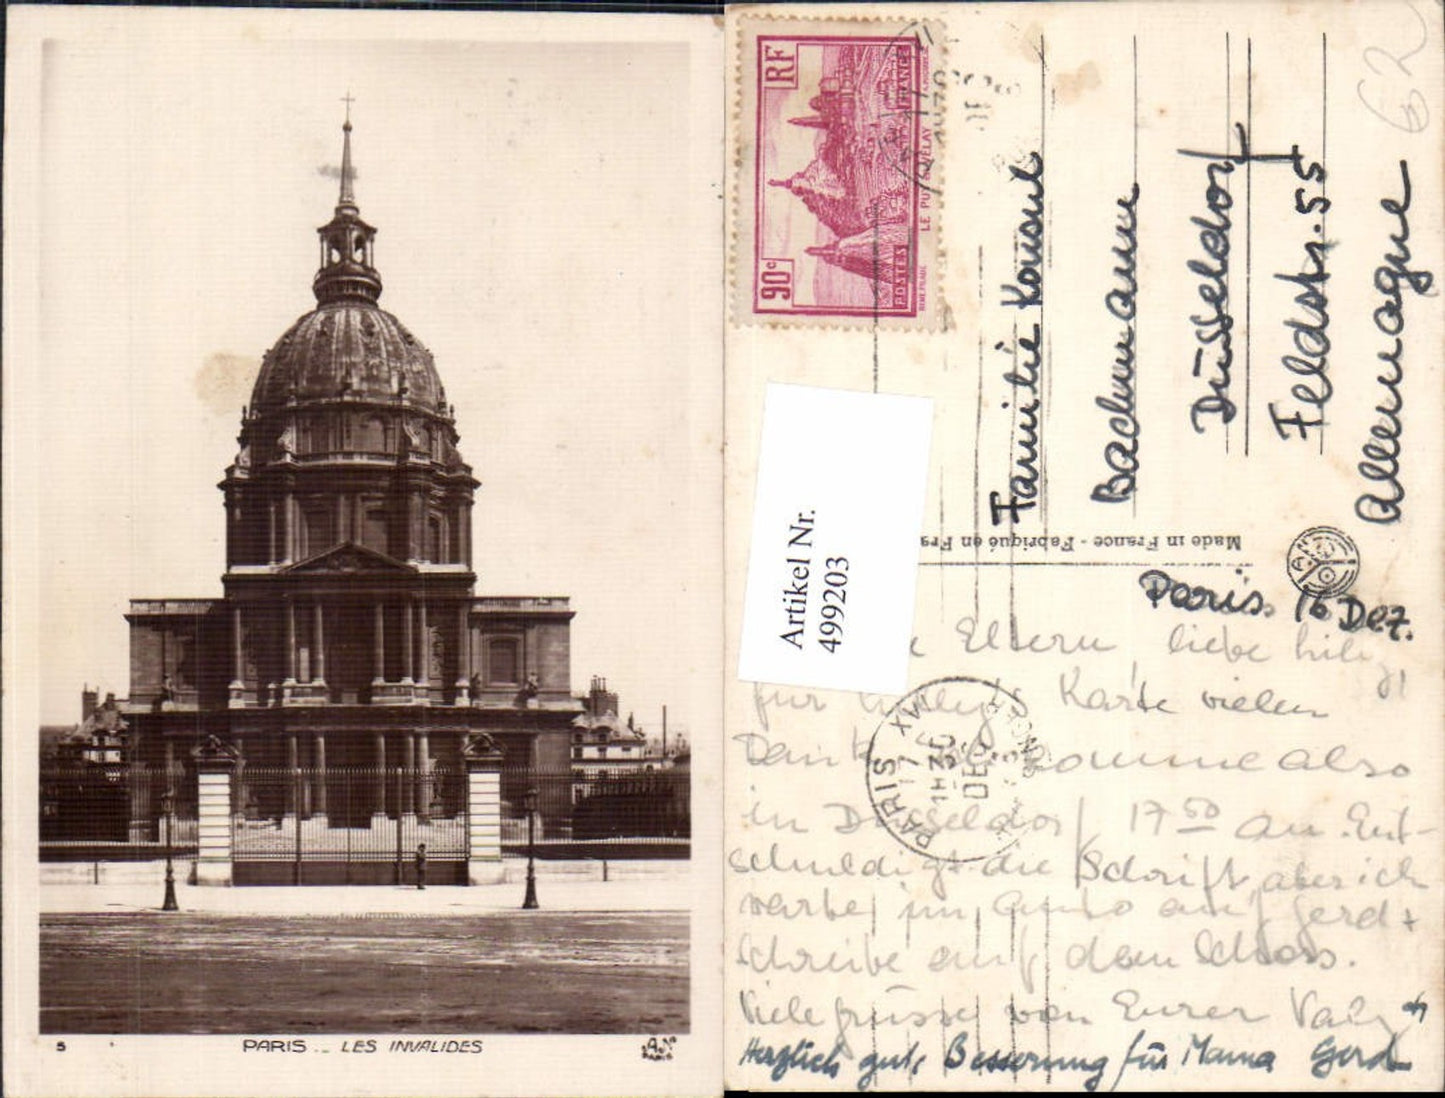 5
PARIS _ LES INVALIDES
PARIS
RF
FRANCE
LE PUY EN VELAY
90c
POSTES
Familie Konsul
Bachmann
Düsseldorf
Feldstr. 55
Allemagne
62
Artikel Nr.
499203
Made in France - Fabriqué en Fra
Paris. 16 Dez.
Eltern, liebe
für Karte vielen
Dank. komme also
in Düsseldorf 17 50 an. Ent-
schuldigt die Schrift, aber ich
warte im Auto auf Gerd +
schreibe auf dem Schoss.
Viele Grüsse von Eurer
Herzlich gute Besserung für Mama Gerd
PARIS
17
1H30
DEC